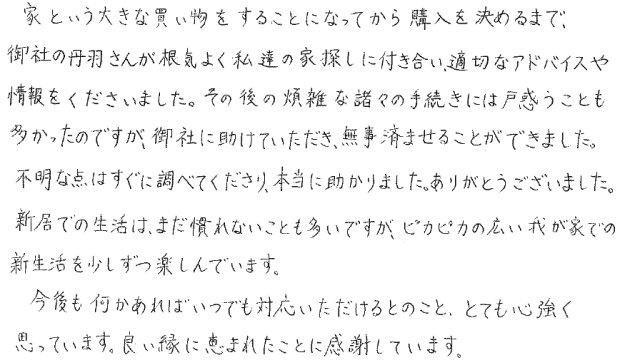 家という大きな買い物をすることになってから購入を決めるまで、
御社の丹羽さんが根気よく私達の家探しに付き合い、適切なアドバイスや
情報をくださいました。その後の煩雑な諸々の手続きには戸惑うことも
多かったのですが、御社に助けていただき、無事済ませることができました。
不明な点はすぐに調べてくださり、本当に助かりました。ありがとうございました。
新居での生活は、まだ慣れないことも多いですが、ピカピカの広い我が家での
新生活を少しずつ楽しんでいます。
今後も何かあればいつでも対応いただけるとのこと、とても心強く
思っています。良い縁に恵まれたことに感謝しています。